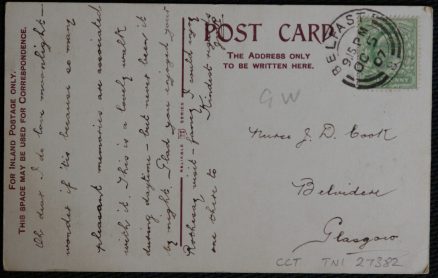 FOR INLAND POSTAGE ONLY.
THIS SPACE MAY BE USED FOR CORRESPONDENCE.
Oh dear I do love moonlight –
wonder if 'tis because so many
pleasant memories are associated
with it. This is a lovely walk
during daytime – but never been it
by night. – Glad you enjoyed your
Rothesay visit – fancy I could spy
one close to
Kindest
RELIABLE SERIES
POST CARD
THE ADDRESS ONLY
TO BE WRITTEN HERE.
BELFAST
9.15 PM
OC
07
PENNY
GW
Nurse J. D. Cook
Belvidere
Glasgow
CCT TNI 27382